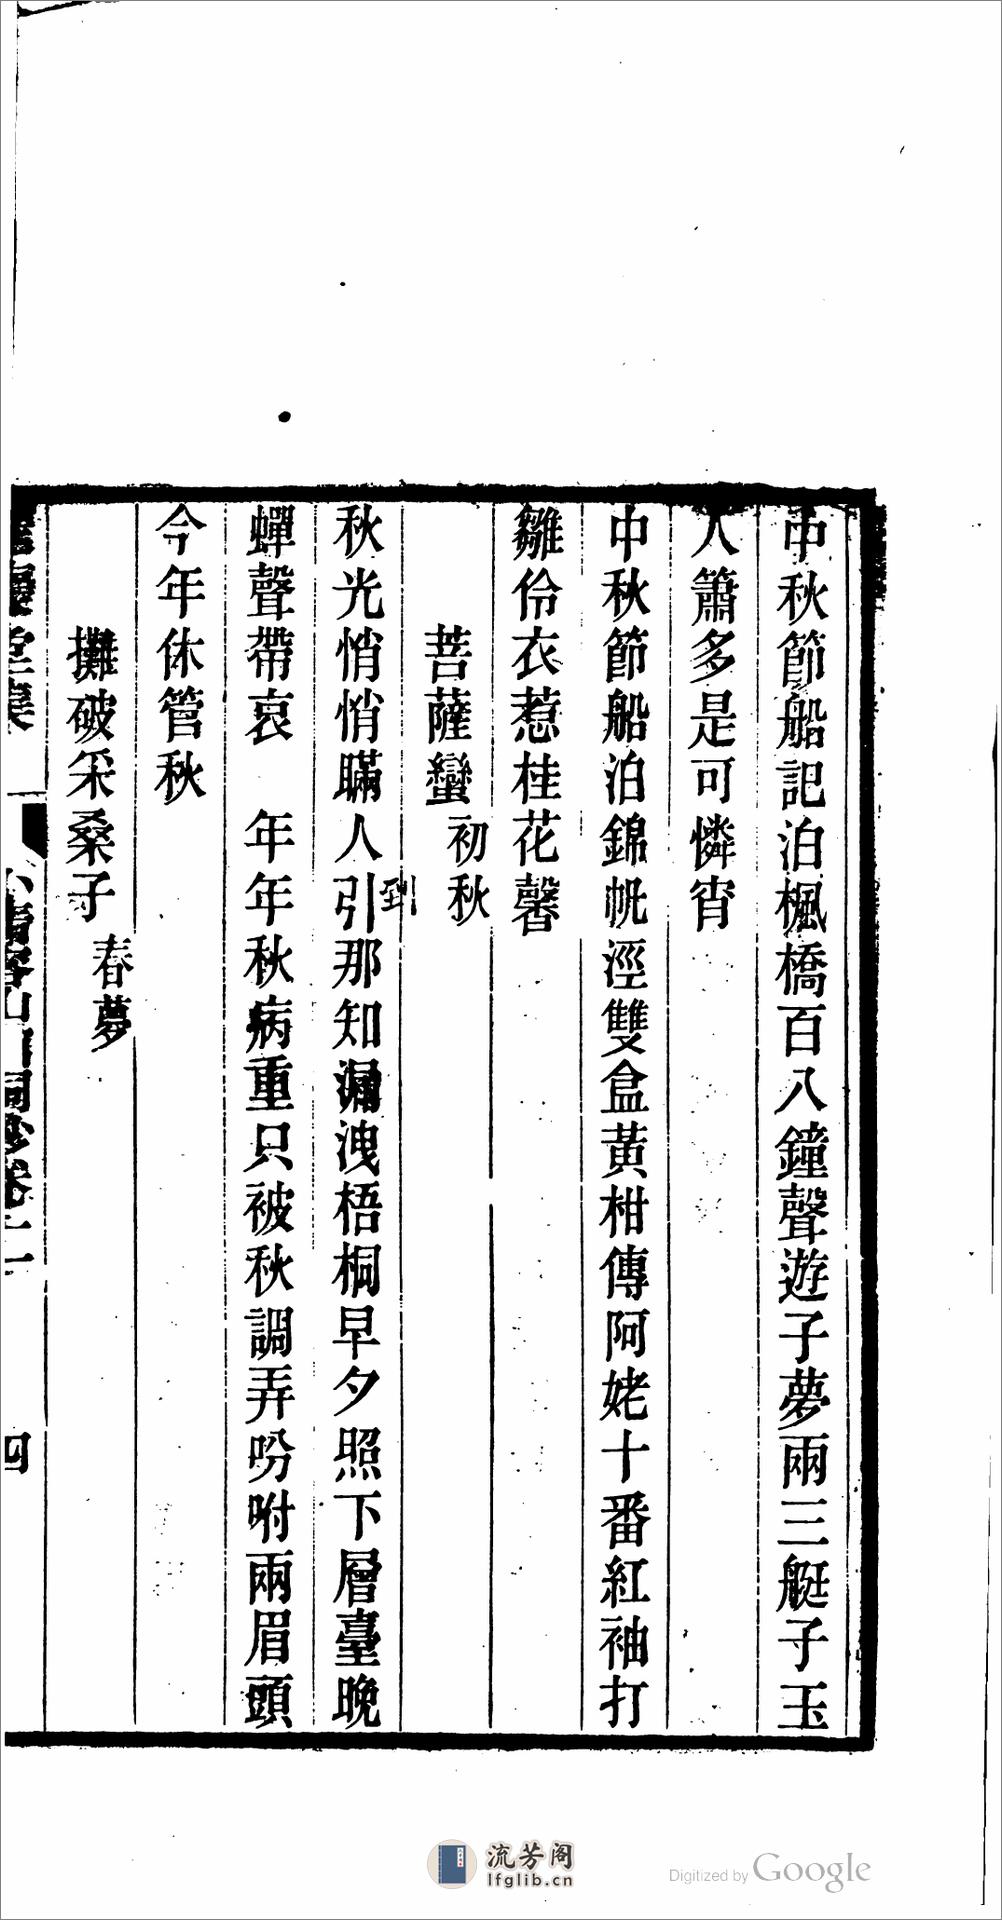 中秋節船記泊楓橋百八鐘聲遊子夢兩三艇子玉
人簫多是可憐宵
中秋節船泊錦帆涇雙盒黃柑傳阿姥十番紅袖打
雛伶衣惹桂花馨
菩薩蠻 初秋
秋光悄悄瞞人引到那知漏洩梧桐早夕照下層臺晚
蟬聲帶哀　年年秋病重只被秋調弄吩咐兩眉頭
今年休管秋
攤破采桑子 春夢
堂集
卷十一
四
流芳阁
lfglib.cn
Digitized by Google